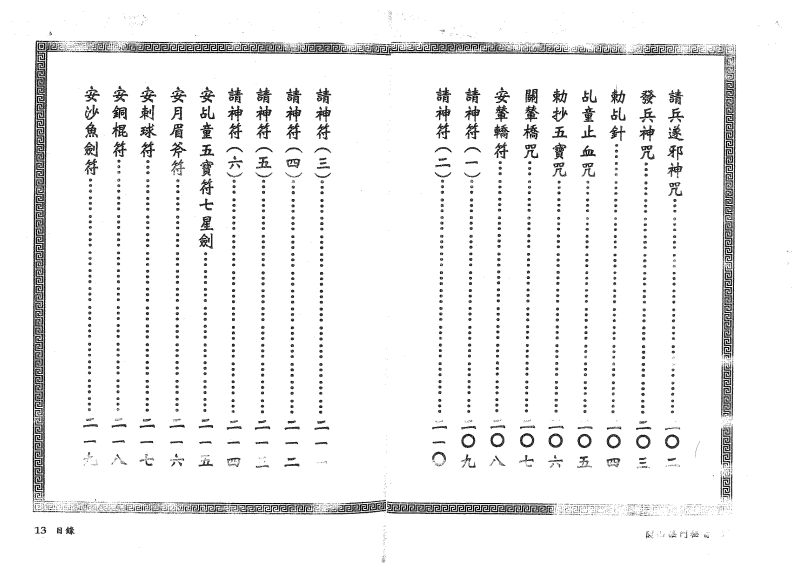 請兵逐邪神咒……二〇二
發兵神咒……二〇三
勅乩針……二〇四
乩童止血咒……二〇五
勅抄五寶咒……二〇六
關輦橋咒……二〇七
安輦轎符……二〇八
請神符（一）……二〇九
請神符（二）……二一〇
請神符（三）……二一一
請神符（四）……二一二
請神符（五）……二一三
請神符（六）……二一四
安乩童五寶符七星劍……二一五
安月眉斧符……二一六
安刺球符……二一七
安銅棍符……二一八
安沙魚劍符……二一九
13 目錄